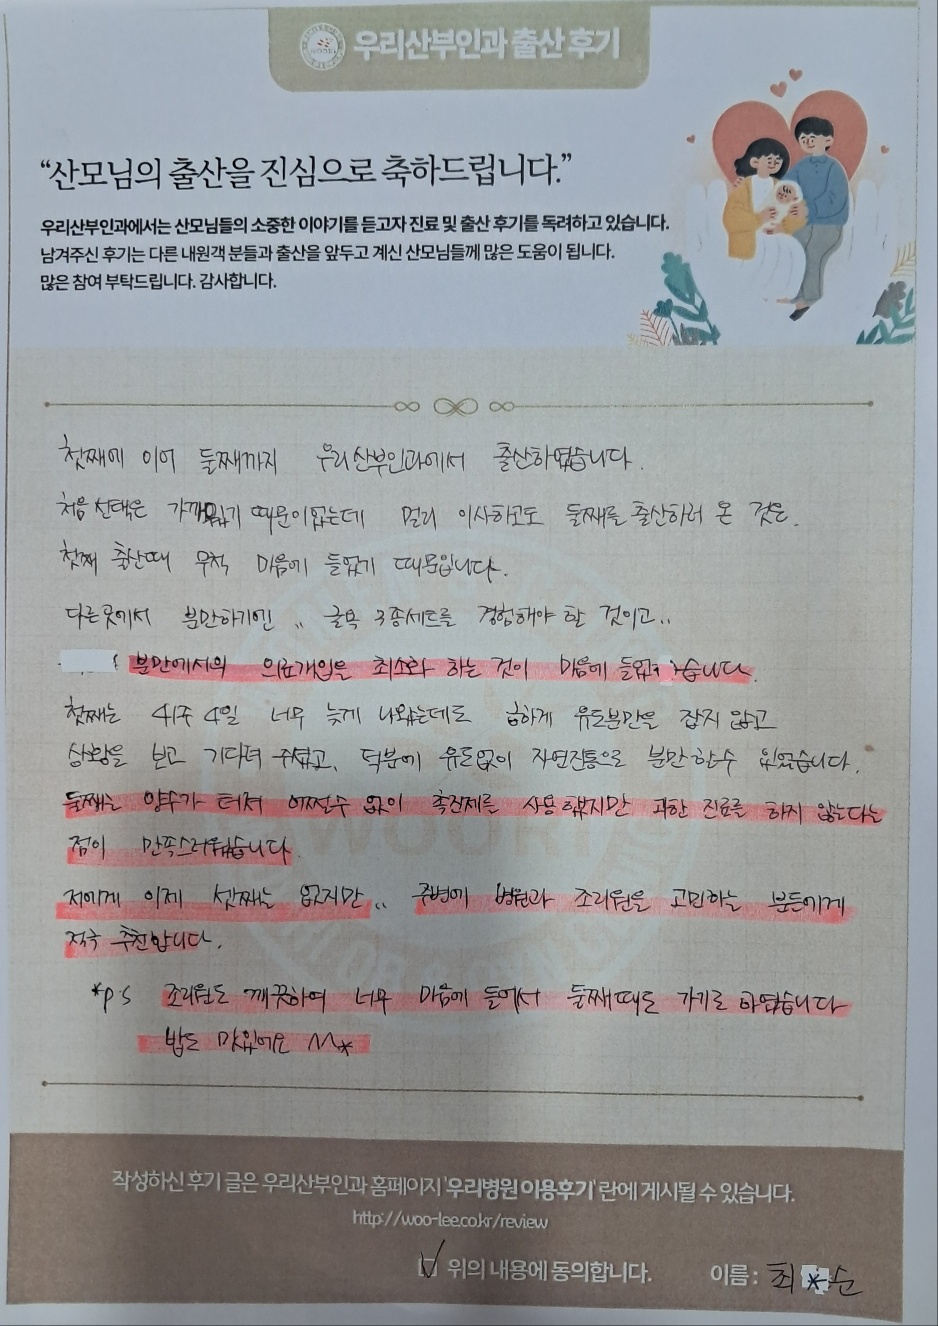 우리산부인과 출산 후기
“산모님의 출산을 진심으로 축하드립니다.”
우리산부인과에서는 산모님들의 소중한 이야기를 듣고자 진료 및 출산 후기를 독려하고 있습니다.
남겨주신 후기는 다른 내원객 분들과 출산을 앞두고 계신 산모님들께 많은 도움이 됩니다.
많은 참여 부탁드립니다. 감사합니다.
첫째에 이어 둘째까지 우리산부인과에서 출산하였습니다.
처음 선택은 가까웠기 때문이었는데 멀리 이사하고도 둘째를 출산하러 온 것은.
첫째 출산때 무척 마음에 들었기 때문입니다.
다른곳에서 분만하기엔 .. 굴욕 3종세트를 경험해야 할 것이고..
분만에서의 의료개입을 최소화 하는 것이 마음에 들었습니다.
첫째는 41주 4일 너무 늦게 나왔는데도 급하게 유도분만을 잡지 않고
상황을 보고 기다려 주셨고, 덕분에 유도없이 자연진통으로 분만할수 있었습니다.
둘째는 양수가 터져 어쩔수 없이 촉진제를 사용했지만 과한 진료를 하지 않는다는
점이 만족스러웠습니다.
저에게 이제 셋째는 없지만.. 주변에 병원과 조리원을 고민하는 분들에게
적극 추천합니다.
*p.s 조리원도 깨끗하여 너무 마음에 들어서 둘째때도 가기로 하였습니다
밥도 맛있어요 ^^*
작성하신 후기 글은 우리산부인과 홈페이지 '우리병원 이용후기' 란에 게시될 수 있습니다.
http://woo-lee.co.kr/review
위의 내용에 동의합니다. 이름 : 최*순